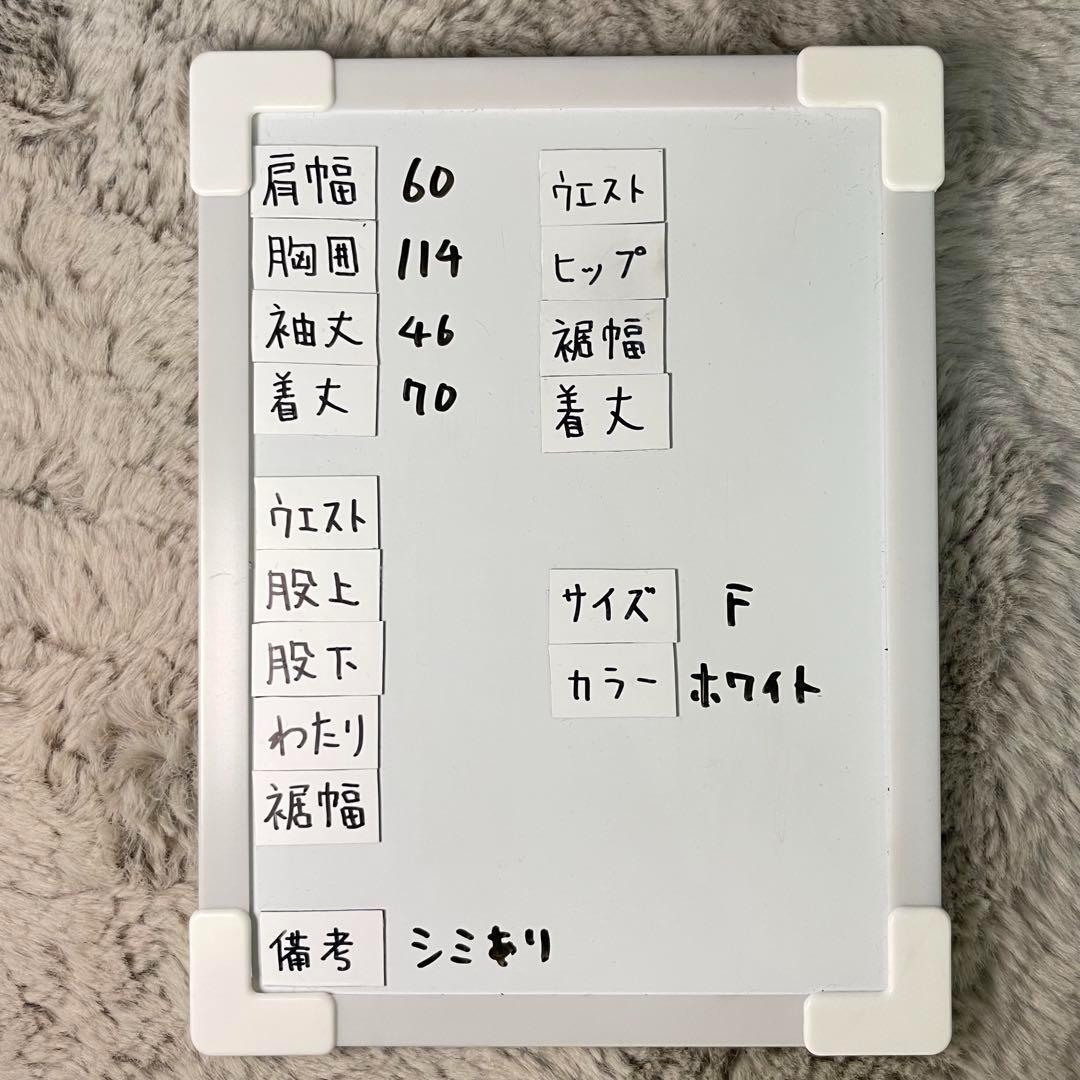 肩幅 60
胸囲 114
袖丈 46
着丈 70
ウエスト
ヒップ
裾幅
着丈
ウエスト
股上
股下
わたり
裾幅
サイズ F
カラー ホワイト
備考 シミあり